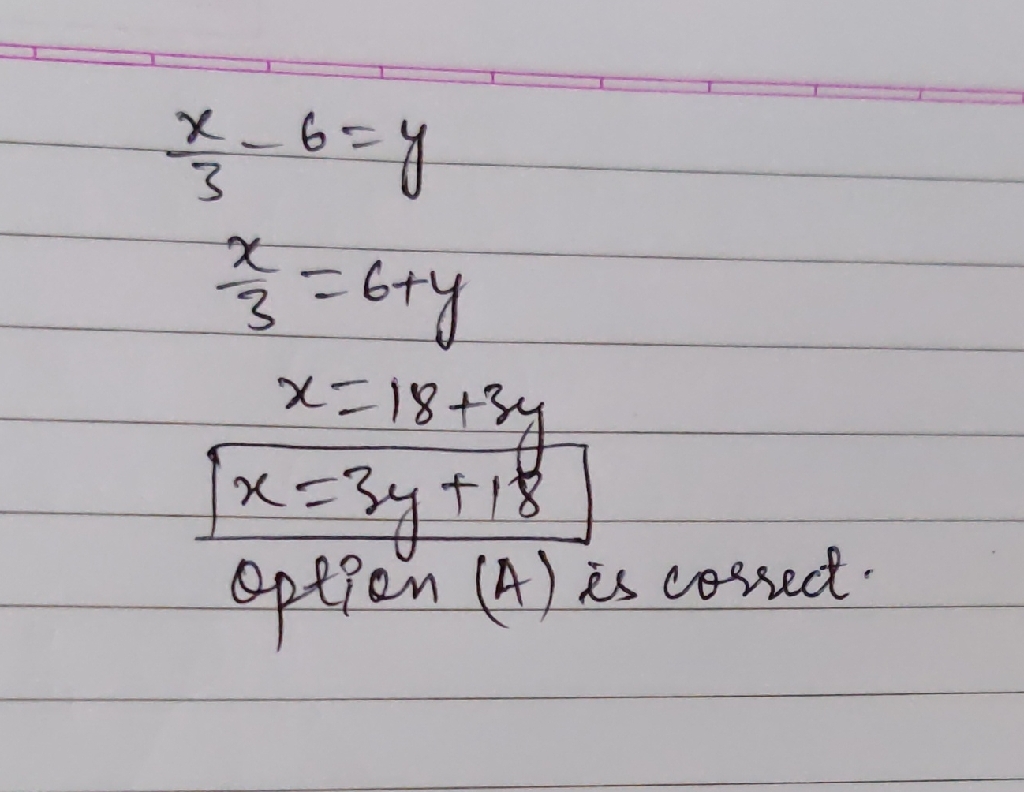 x/3 - 6 = y
x/3 = 6+y
x = 18+3y
x = 3y + 18
option (A) is correct.